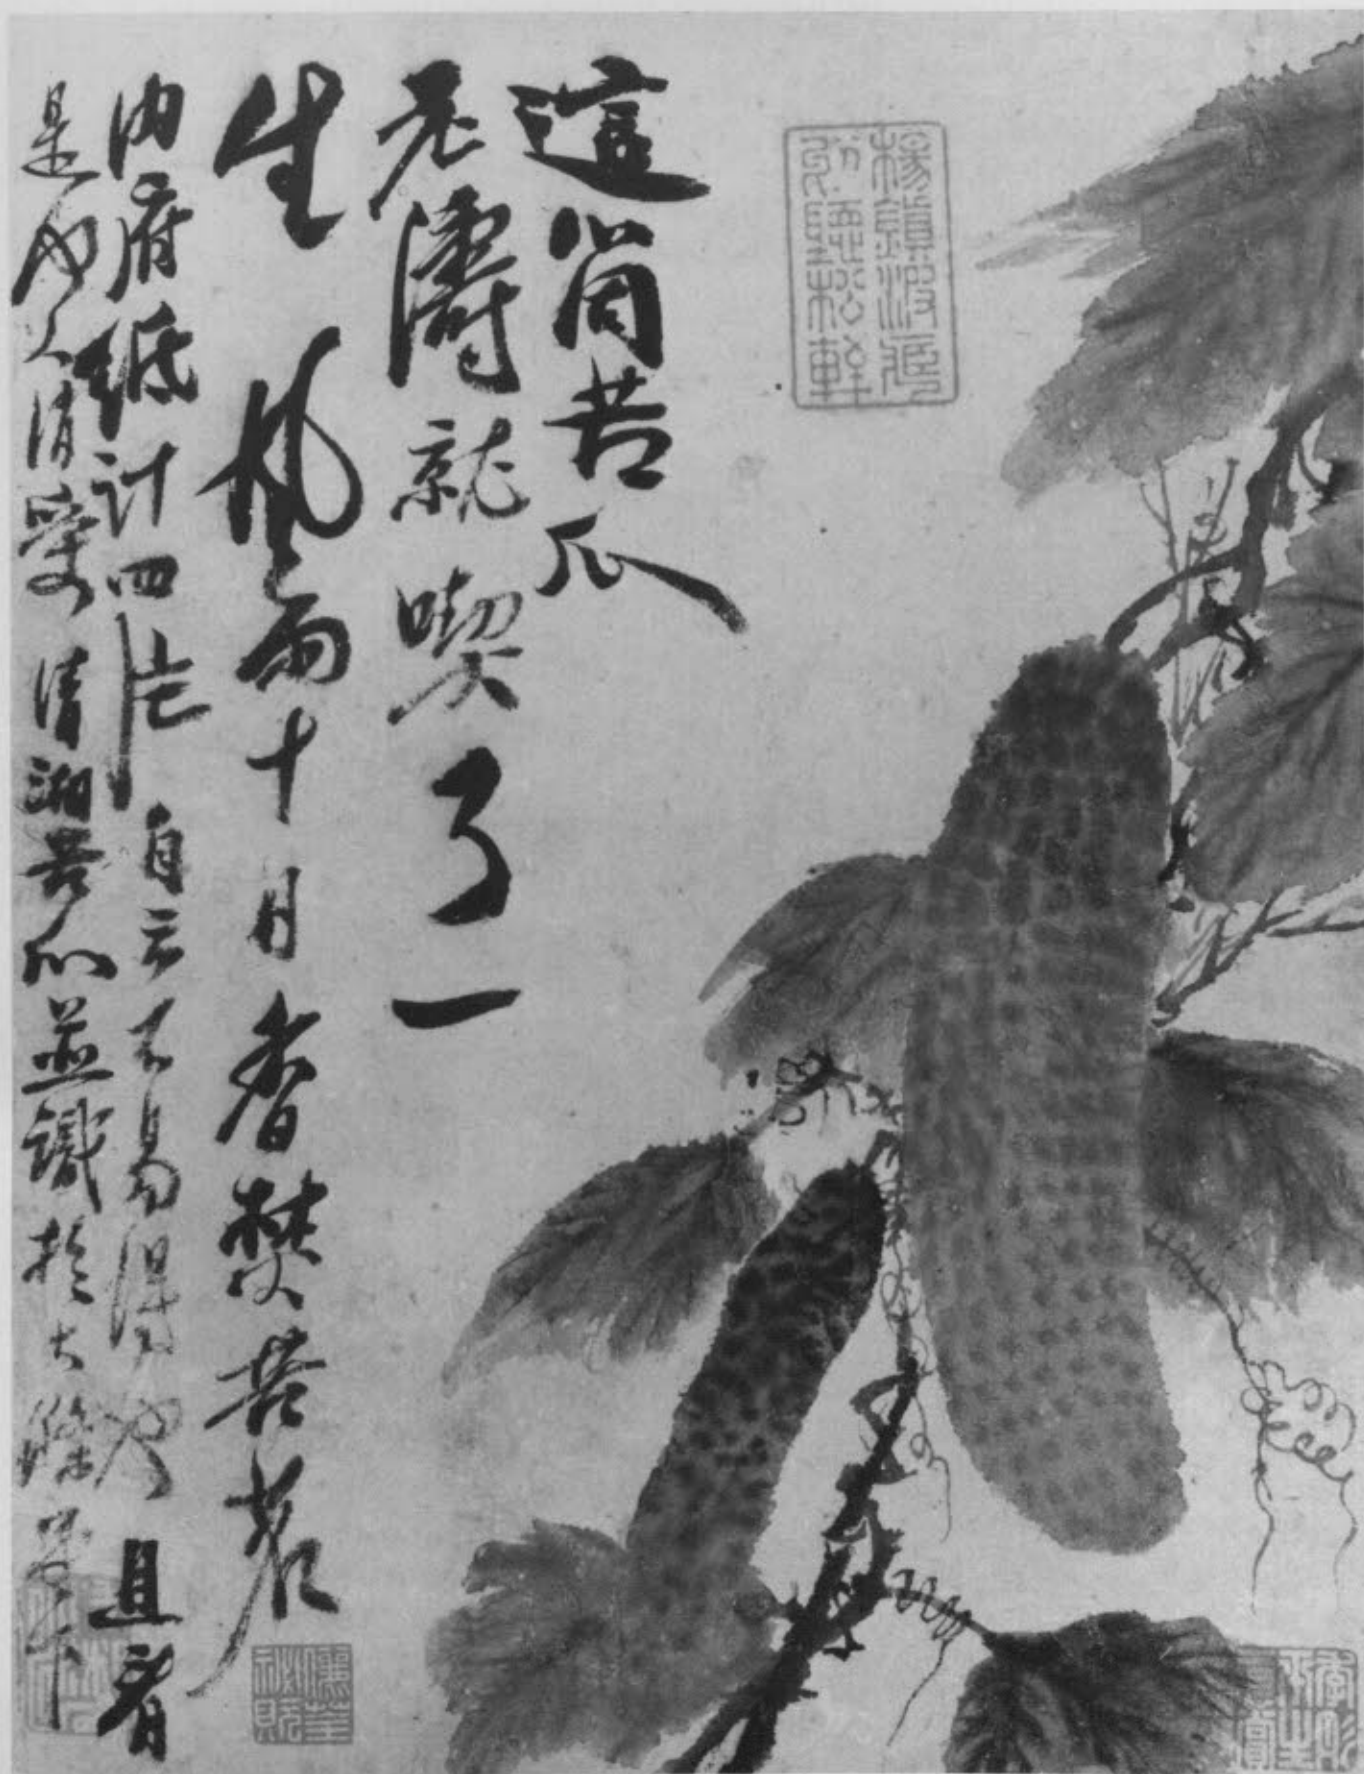 這箇苦瓜
老濤就喫了一
生 風雨十月香焚苦茗
內府紙計四片 自云不易得也 且看
是何人消受 清湘苦瓜並識於大滌草下